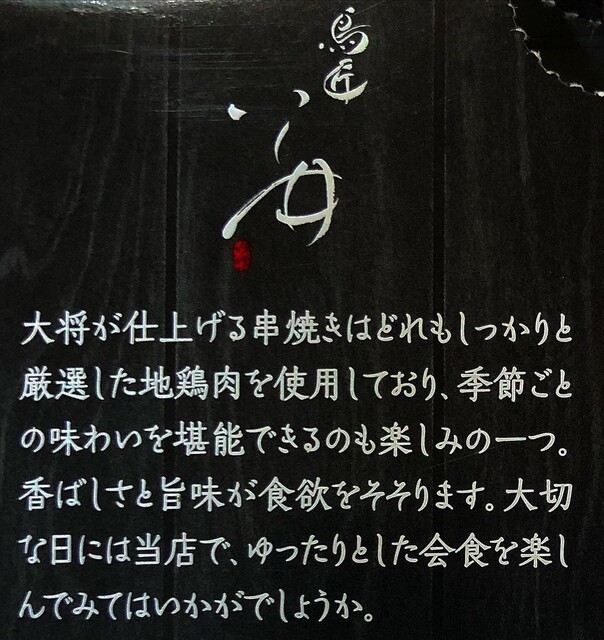 鳥匠
いっ安
大将が仕上げる串焼きはどれもしっかりと
厳選した地鶏肉を使用しており、季節ごと
の味わいを堪能できるのも楽しみの一つ。
香ばしさと旨味が食欲をそそります。大切
な日には当店で、ゆったりとした会食を楽し
んでみてはいかがでしょうか。